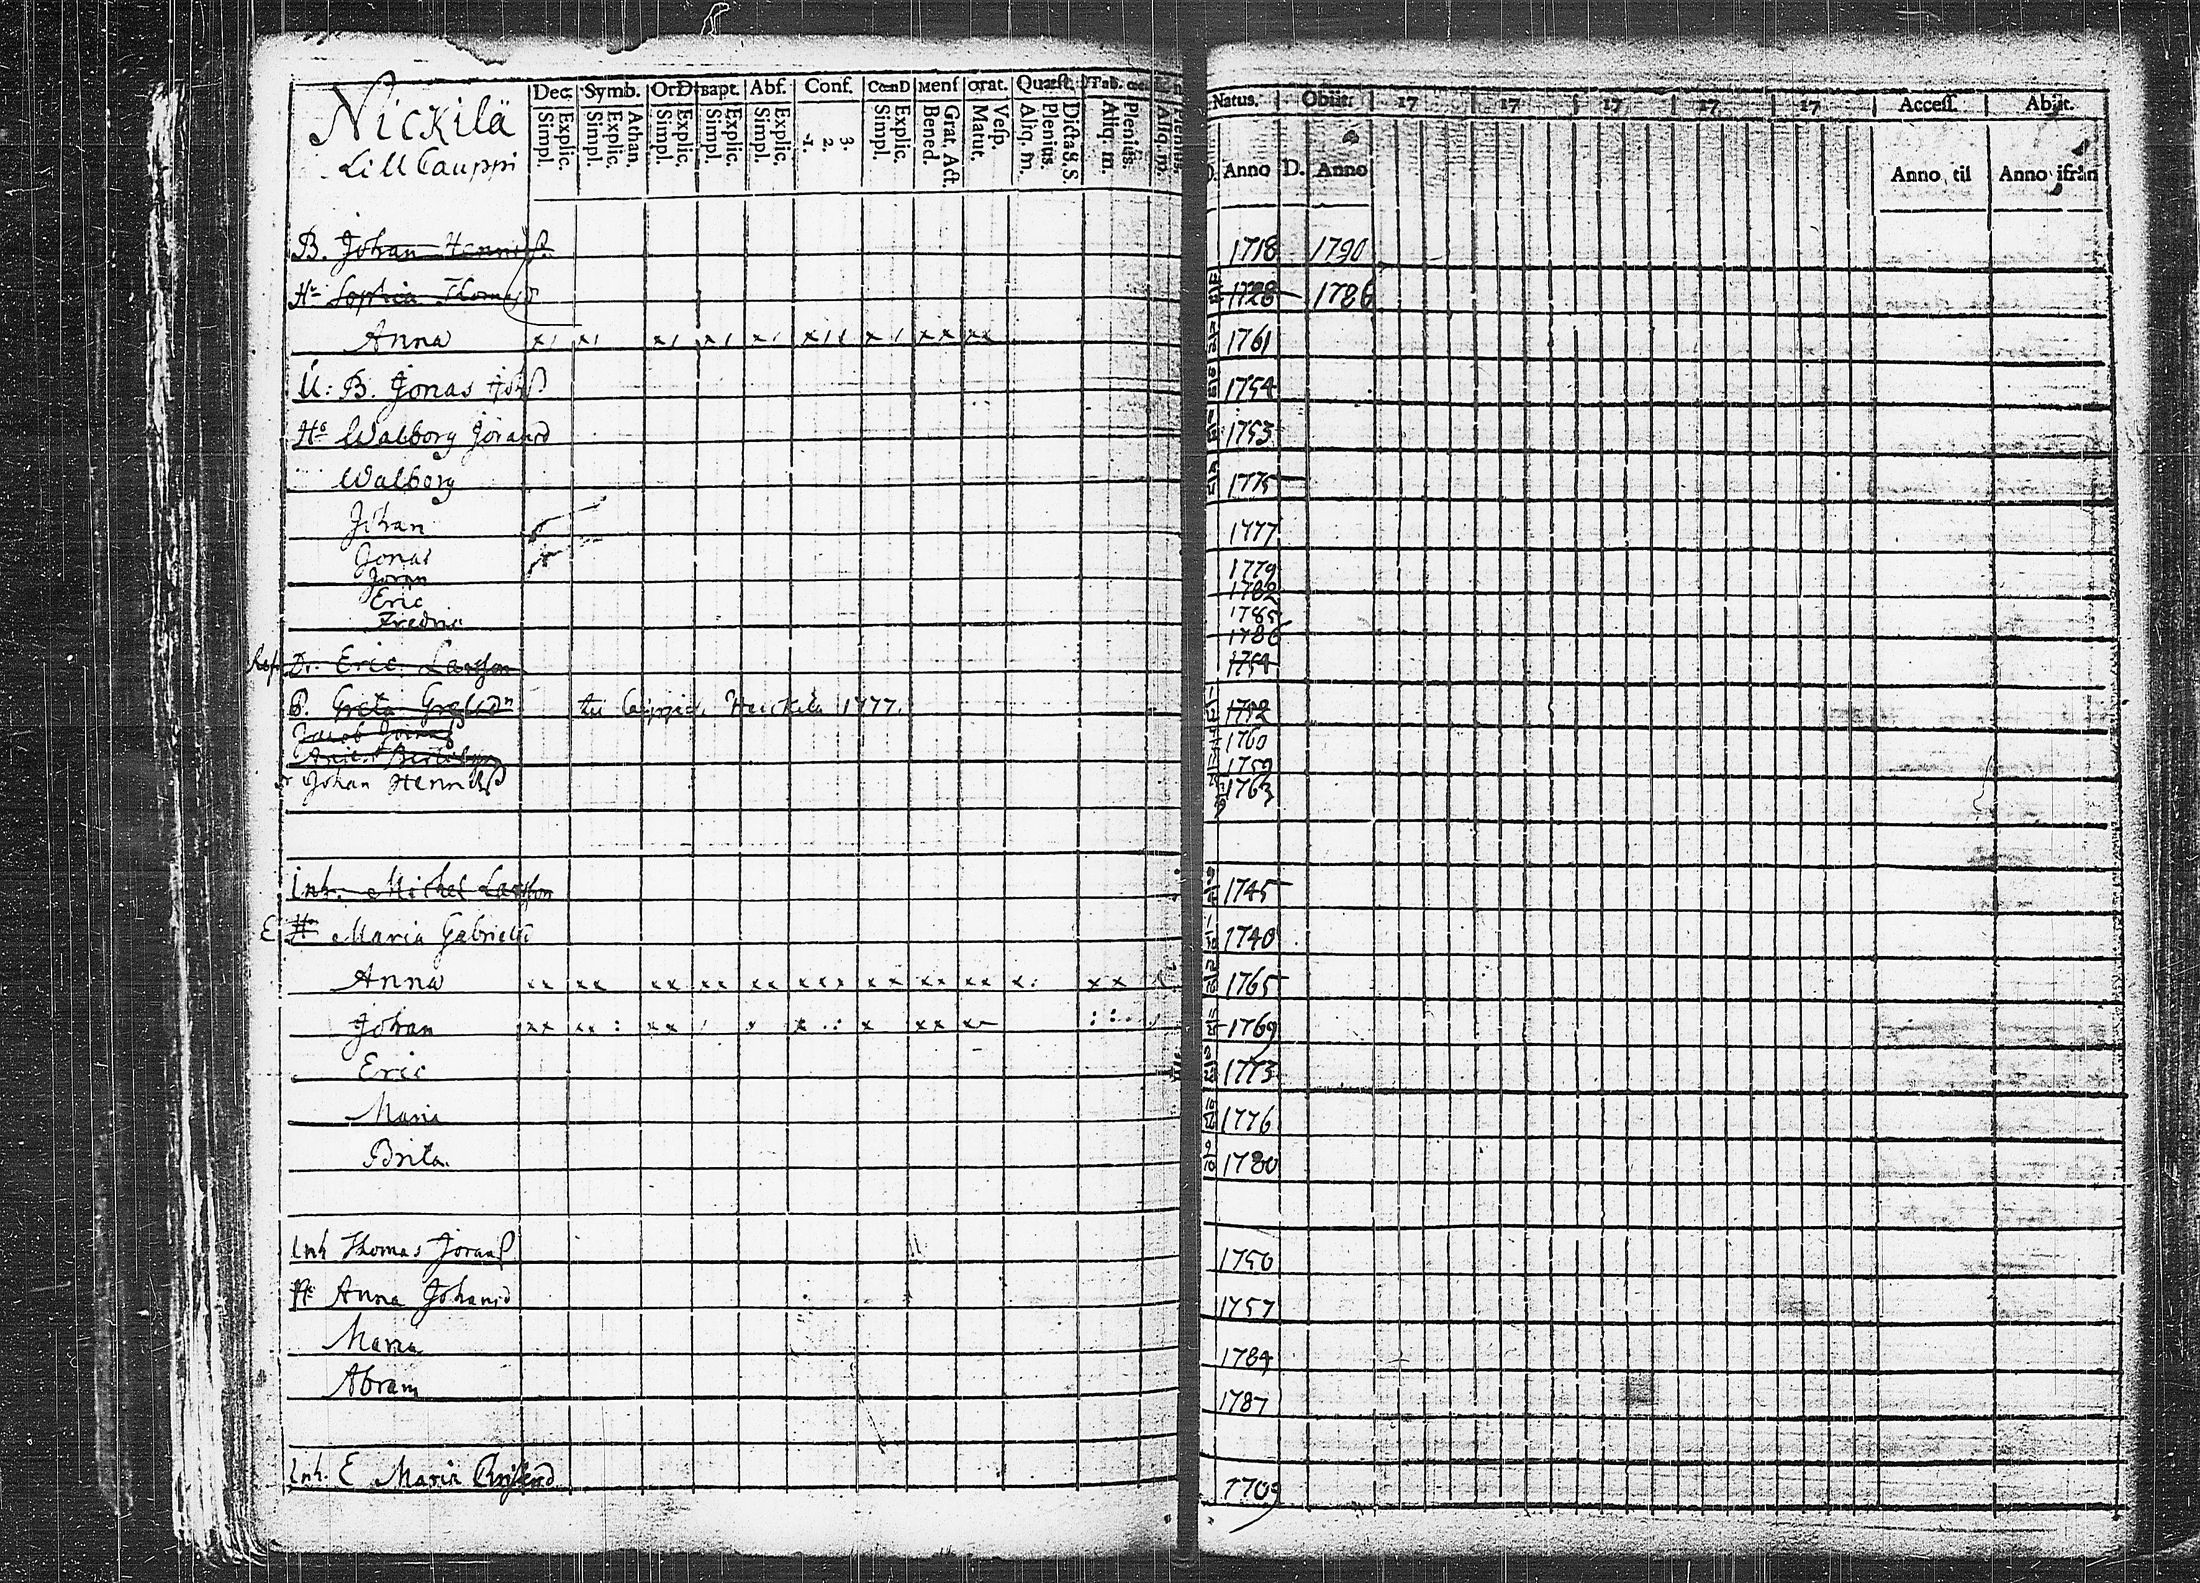 Nickilä
Lill Cauppi
Dec. Symb. OrD Bapt. Abs. Conf. CœnD Mens Orat. Quæst. Tab. œc.
Explic. Simpl. Athan. Explic. Simpl. Explic. Simpl. Explic. Simpl. Explic. Simpl. 3. 2. 1. Explic. Simpl. Grat. Act. Bened. Vesp. Matut. Dicta S. S. Plenius. Aliq. m. Plenius. Aliq. m. Aliq. m.
Natus. Obiit: 17 17 17 17 17 Access. Abiit.
D. Anno D. Anno Anno til Anno ifrån
B. Johan Hennisß. 1718 1790
Hu Sophia Thomasd 1728 1786
Anna x1 x1 x1 x1 x1 x11 x1 xx xx 1761
U: B. Jonas Johß 1754
Ho Walborg Joransd 1753
Walborg 1775
Johan 1777
Jonas 1779
Joran 1782
Eric 1785
Fredric 1786
Dr. Eric Larsson 1754
P. Greta 1777. 1752
Jacob 1760
1759
Johan Hennisß 1763
Inh. Michel Larsson 1745
E. H. Maria Gabrielsd 1740
Anna xx xx xx xx xx xxx xx xx xx x: xx 1765
Johan xx xx : xx 1769
Eric 1773
Maria 1776
Brita. 1780
Inh Thomas Joransß 1750
H. Anna Johansd 1757
Maria 1784
Abram 1787
Inh. E Maria 1709